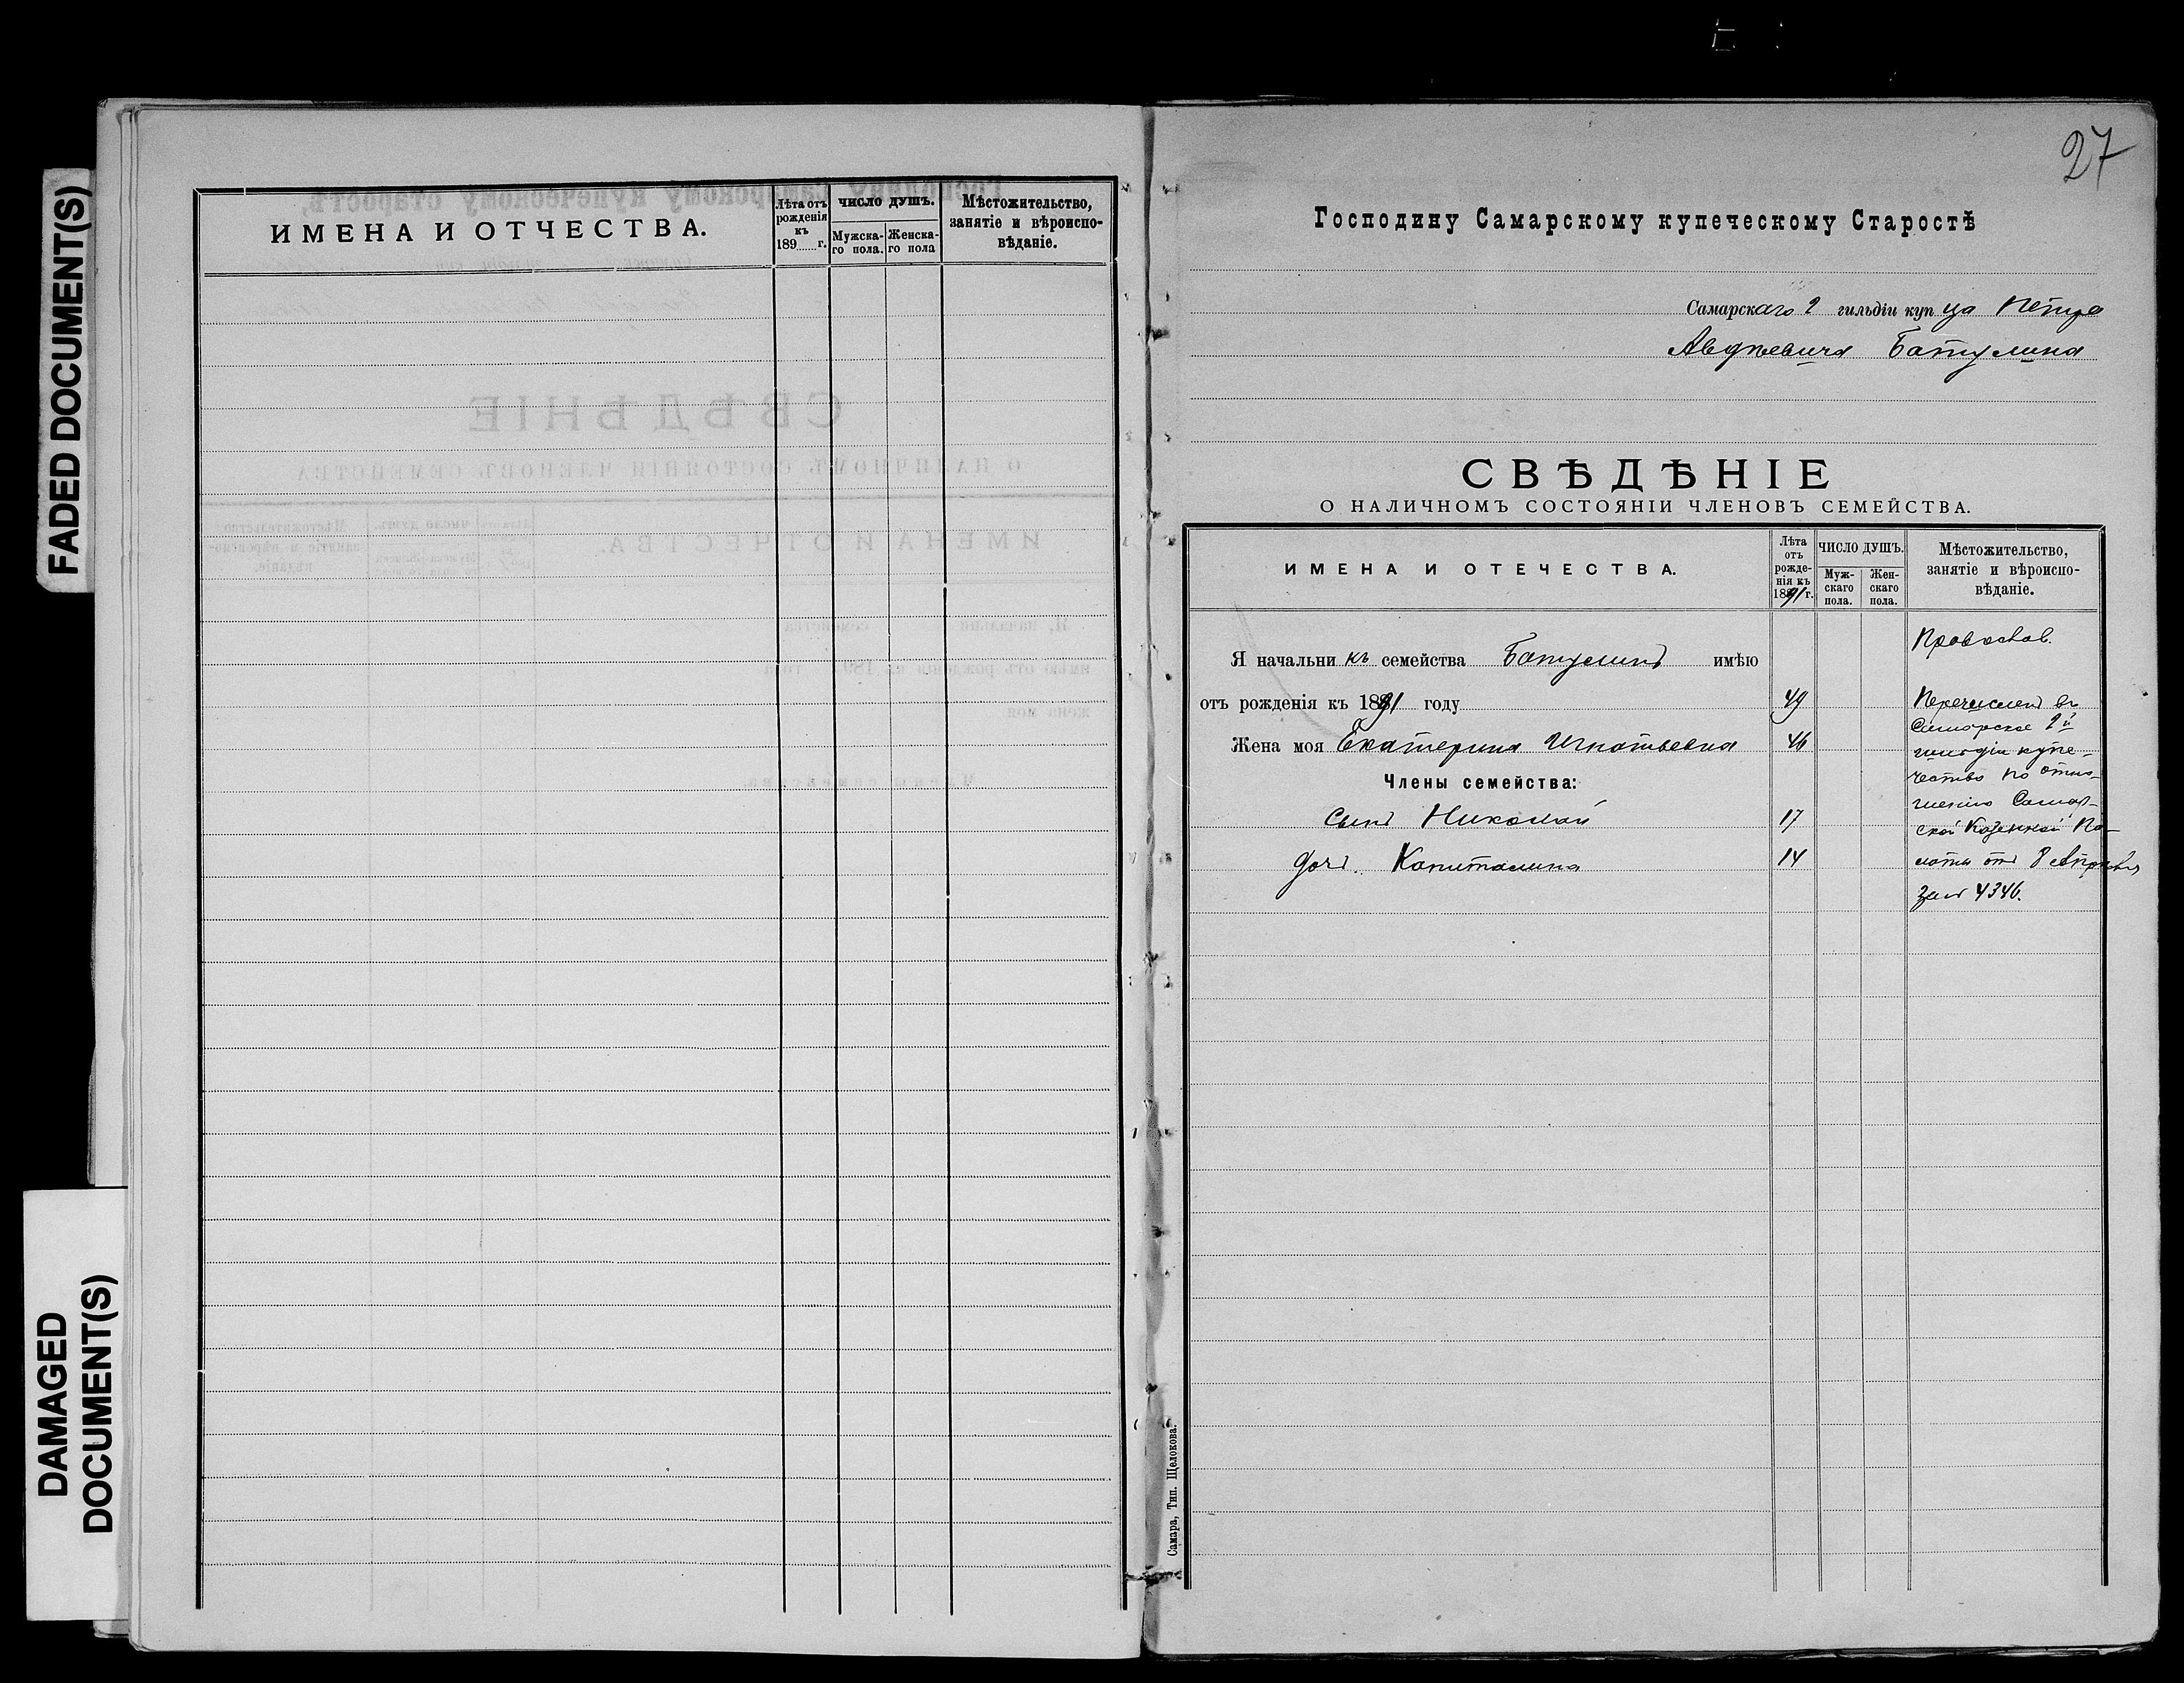 FADED DOCUMENT(S)
DAMAGED
DOCUMENT(S)
ИМЕНА И ОТЧЕСТВА.
Лѣта отъ рожденія къ 189 г.
ЧИСЛО ДУШЪ.
Мужска-го пола.
Женска-го пола
Мѣстожительство, занятіе и вѣроиспо-вѣданіе.
27
Господину Самарскому купеческому Старостѣ
Самарскаго 2 гильдіи купца Петра
Авдѣевича Батулина
СВѢДѢНІЕ
О НАЛИЧНОМЪ СОСТОЯНІИ ЧЛЕНОВЪ СЕМЕЙСТВА.
ИМЕНА И ОТЕЧЕСТВА.
Лѣта отъ рожде-нія къ 1891 г.
ЧИСЛО ДУШЪ.
Муж-скаго пола.
Жен-скаго пола.
Мѣстожительство, занятіе и вѣроиспо-вѣданіе.
Православ.
Я начальникъ семейства Батулинъ имѣю
отъ рожденія къ 1891 году 49
Жена моя Екатерина Игнатьевна 46
Члены семейства:
Сынъ Николай 17
Доч. Капиталина 14
Перечисленъ въ
Самарское 2й
гильдіи купе-
чество по отно-
шенію Самар-
ской Казенной Па-
латы отъ 8 Апрѣля
за № 4346.
Самара, Тип. Щелокова.